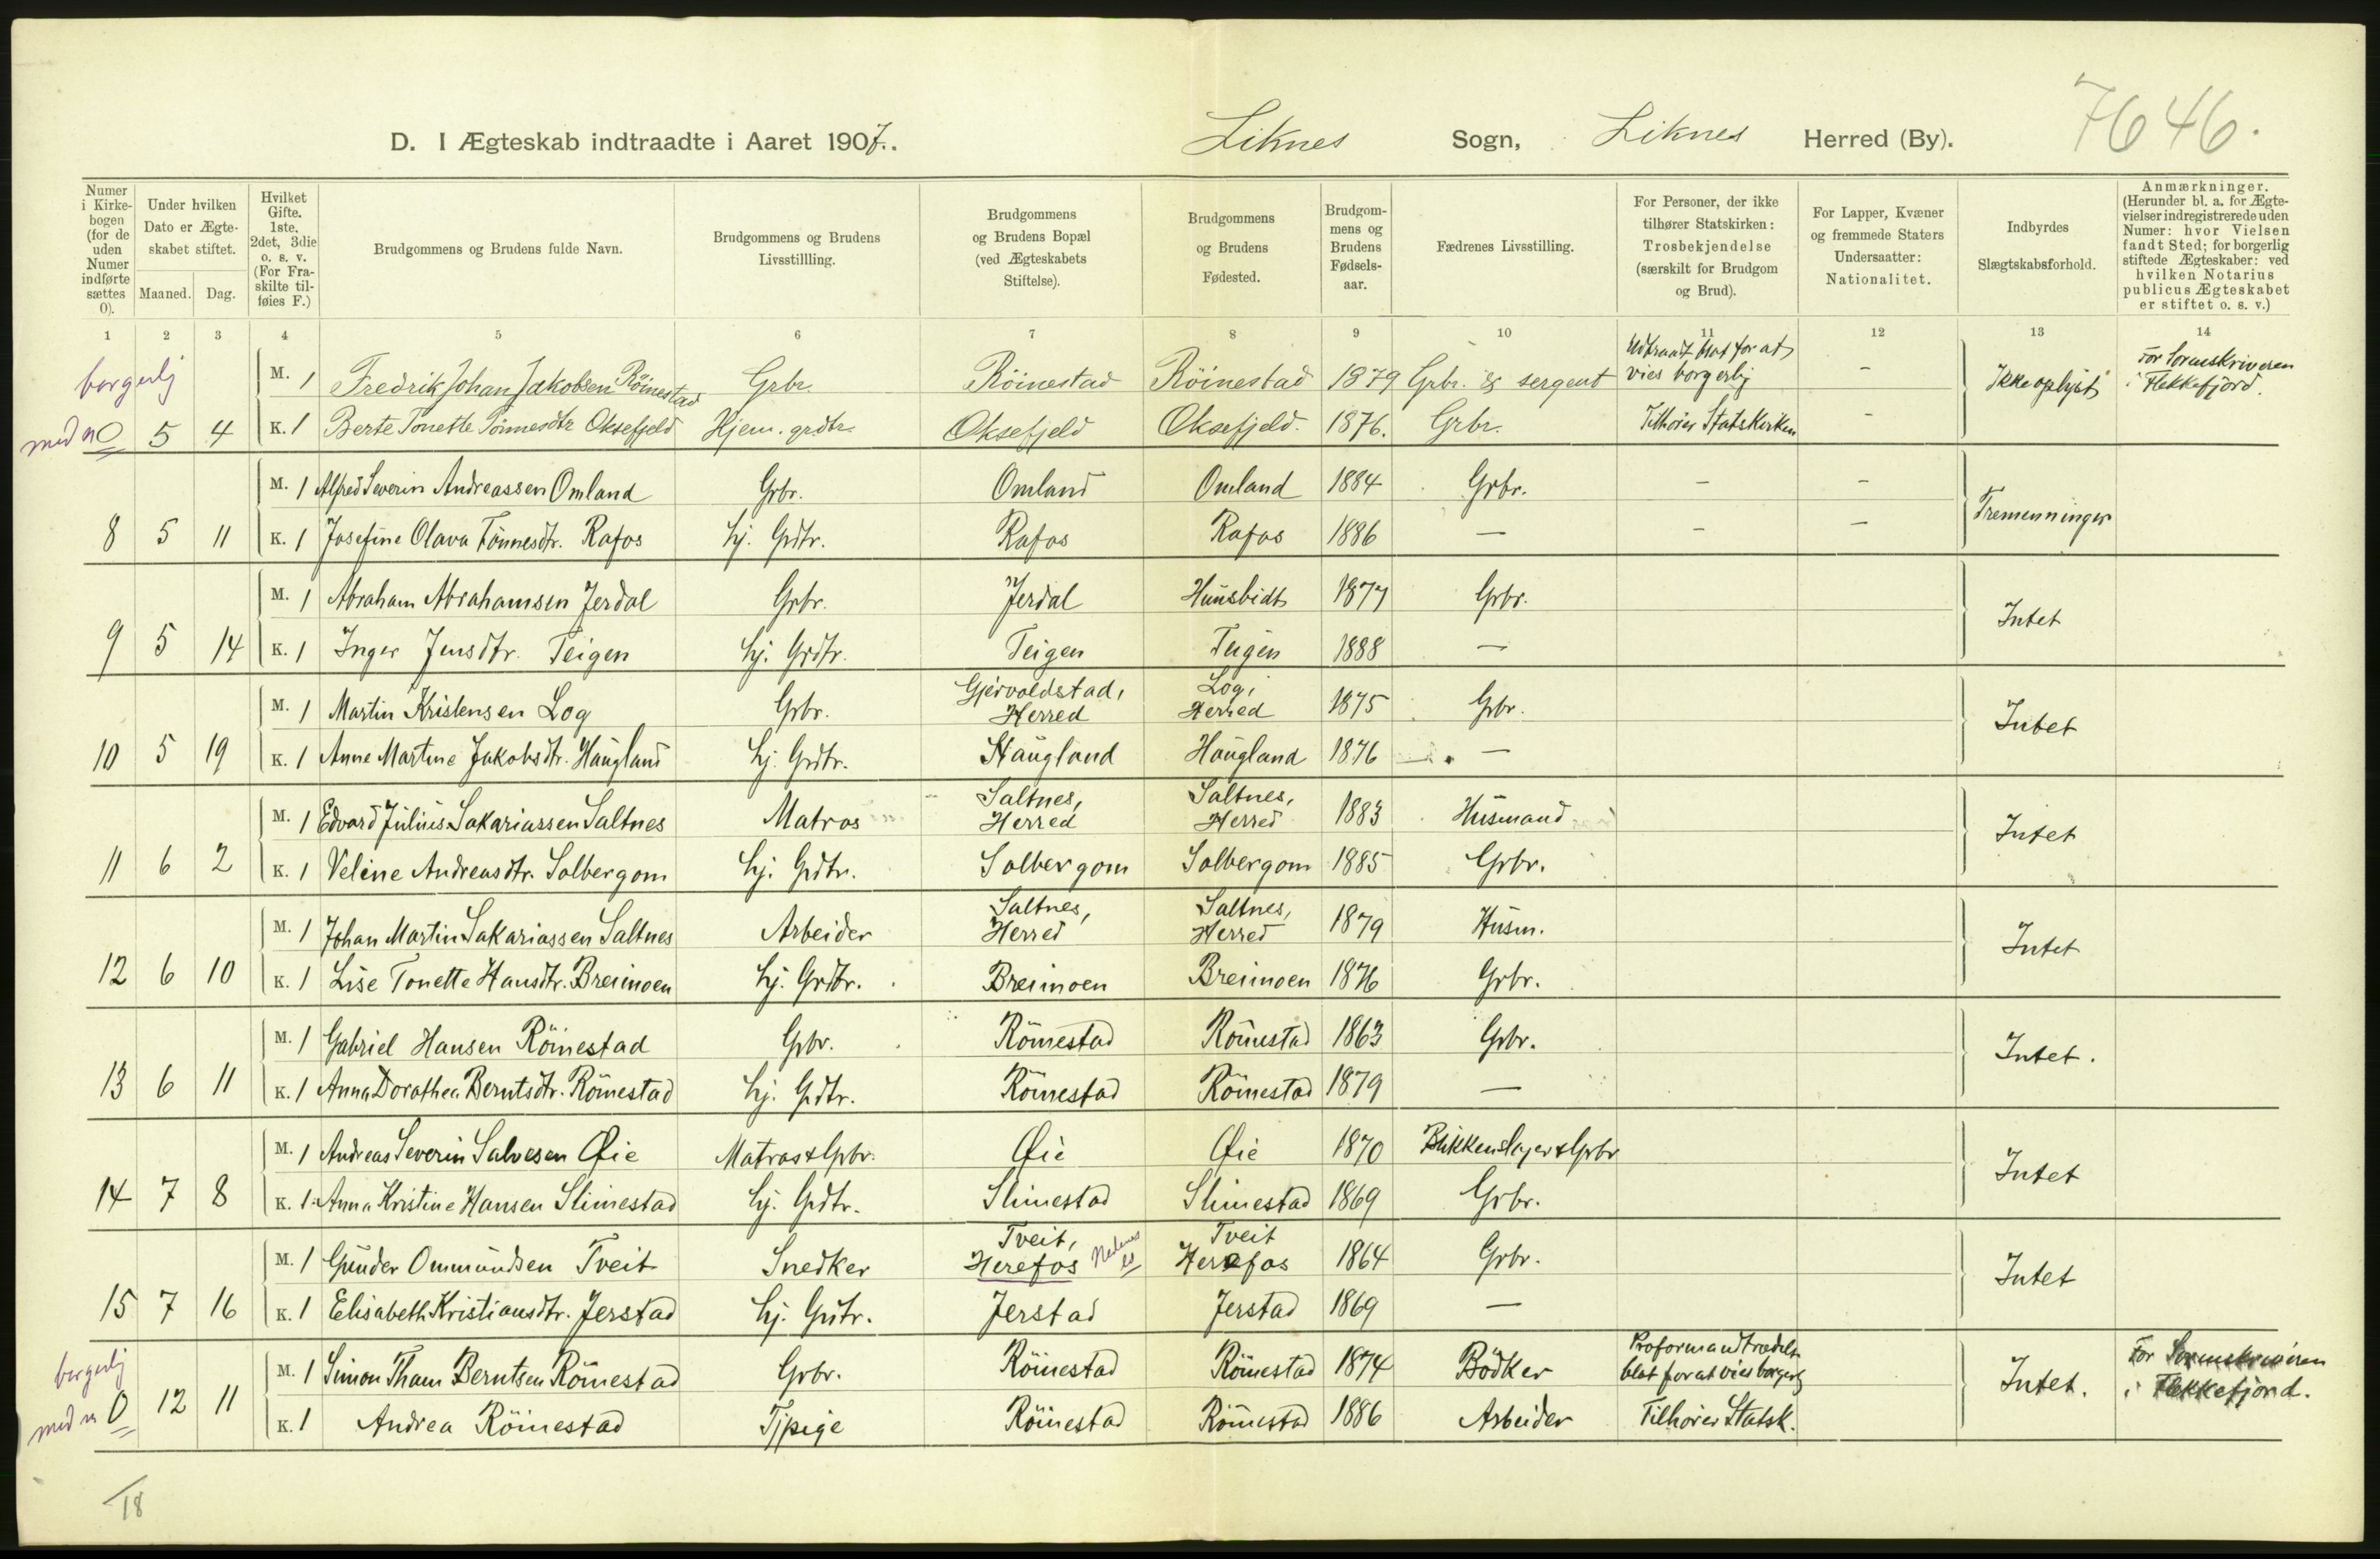 7646.
D. I Ægteskab indtraadte i Aaret 1907. Liknes Sogn, Liknes Herred (By).
Numer i Kirkebogen (for de uden Numer indførte sættes 0).
Under hvilken Dato er Ægteskabet stiftet.
Maaned. Dag.
Hvilket Gifte. 1ste. 2det, 3die o. s. v. (For Fraskilte tilføies F.)
Brudgommens og Brudens fulde Navn.
Brudgommens og Brudens Livsstillling.
Brudgommens og Brudens Bopæl (ved Ægteskabets Stiftelse).
Brudgommens og Brudens Fødested.
Brudgommens og Brudens Fødselsaar.
Fædrenes Livsstilling.
For Personer, der ikke tilhører Statskirken: Trosbekjendelse (særskilt for Brudgom og Brud).
For Lapper, Kvæner og fremmede Staters Undersaatter: Nationalitet.
Indbyrdes Slægtskabsforhold.
Anmærkninger. (Herunder bl. a. for Ægtevielser indregistrerede uden Numer: hvor Vielsen fandt Sted; for borgerlig stiftede Ægteskaber: ved hvilken Notarius publicus Ægteskabet er stiftet o. s. v.)
1 2 3 4 5 6 7 8 9 10 11 12 13 14
borgerlig M. 1 Fredrik Johan Jakobsen Röinestad Grbr. Röinestad Röinestad 1879 Grbr. & sergent Udtraadt blot for at vies borgerlig - Ikke oplyst For Sorenskriveren i Flekkefjord.
med n 0 5 4 K. 1 Berte Tonette Tönnesdtr Oksefjeld Hjem. grdtr. Oksefjeld Oksefjeld. 1876. Grbr. Tilhører Statskirken -
M. 1 Alfred Severin Andreassen Omland Grbr. Omland Omland 1884 Grbr. - - Tremenninger
8 5 11 K. 1 Josefine Olava Tönnesdtr. Rafos hj. Grdtr. Rafos Rafos 1886 — - -
M. 1 Abraham Abrahamsen Jerdal Grbr. Jerdal Hunsbidt 1877 Grbr. Intet
9 5 14 K. 1 Inger Jensdtr. Teigen hj. Grdtr. Teigen Teigen 1888 —
M. 1 Martin Kristensen Log Grbr. Gjervoldstad, Herred Log, Herred 1875 Grbr. Intet
10 5 19 K. 1 Anne Martine Jakobsdtr. Haugland hj. Grdtr. Haugland Haugland 1876 —
M. 1 Edvard Julius Sakariassen Saltnes Matros Saltnes, Herred Saltnes, Herred 1883 Husmand Intet
11 6 2 K. 1 Veline Andreasdtr. Solbergom hj. Grdtr. Solbergom Solbergom 1885 Grbr.
M. 1 Johan Martin Sakariassen Saltnes Arbeider Saltnes, Herred Saltnes, Herred 1879 Husm. Intet
12 6 10 K. 1 Lise Tonette Hansdtr. Breimoen hj. Grdtr. Breimoen Breimoen 1876 Grbr.
M. 1 Gabriel Hansen Röinestad Grbr. Röinestad Röinestad 1863 Grbr. Intet.
13 6 11 K. 1 Anna Dorothea Berntsdtr. Röinestad hj. Grdtr. Röinestad Röinestad 1879 —
M. 1 Andreas Severin Salvesen Øie Matros & Grbr. Øie Øie 1870 Blikkenslager & Grbr Intet
14 7 8 K. 1 Anna Kristine Hansen Slimestad hj. Grdtr. Slimestad Slimestad 1869 Grbr.
M. 1 Gunder Ommundsen Tveit Snedker Tveit, Herefos Nedenes Tveit Herefos 1864 Grbr. Intet
15 7 16 K. 1 Elisabeth Kristiansdtr. Jerstad hj. Grdtr. Jerstad Jerstad 1869 —
borgerlig M. 1 Simon Tham Berntsen Röinestad Grbr. Röinestad Röinestad 1874 Bödker Proforma udtrædelse blot for at vies borgerlig Intet. For Sorenskriveren i Flekkefjord.
med n 0 12 11 K. 1 Andrea Röinestad Tjpige Röinestad Röinestad 1886 Arbeider Tilhører Statsk.
18